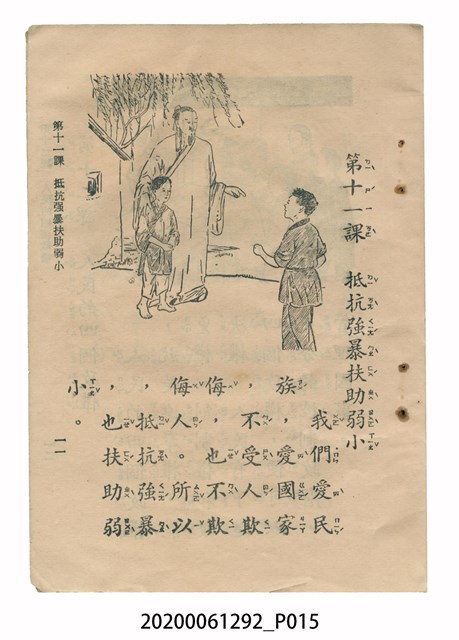 第十一課 抵抗強暴扶助弱小
我們愛民
族，愛國家
，不受人欺
侮，也不欺
侮人。所以
，抵抗強暴
，也扶助弱
小。
第十一課 抵抗强暴扶助弱小
一一
20200061292_P015